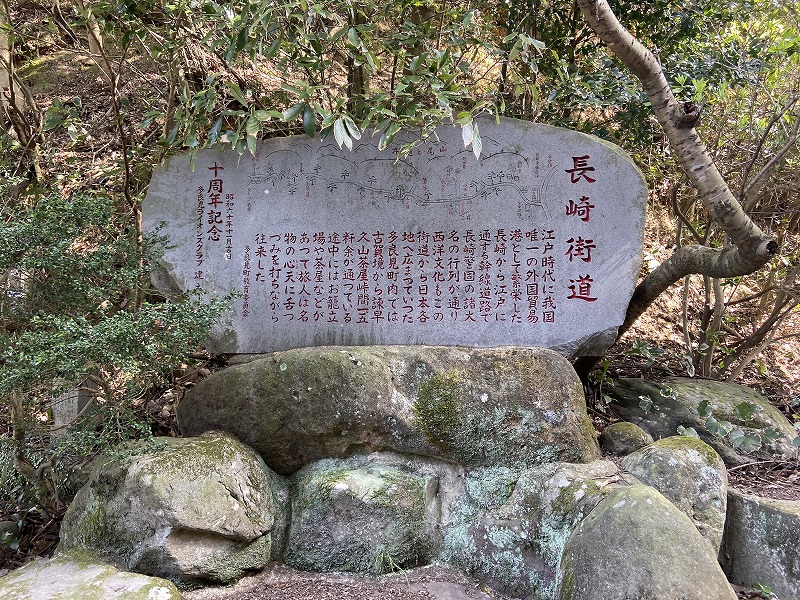 長崎街道
江戸時代に我国
唯一の外国貿易
港として繁栄した
長崎から江戸に
通ずる幹線道路で
長崎警固の諸大
名の行列が通り
西洋文化もこの
街道から日本各
地へ広まっていった
多良見町内では
古賀境から諫早
久山茶屋峠間一五
粁余が通つている
途中にはお籠立
場や茶屋などが
あって旅人は名
物の心天に舌つ
つみを打ちながら
往来した
多良見町教育委員会
昭和六十年十一月
十周年記念
多良見ライオンズクラブ 建